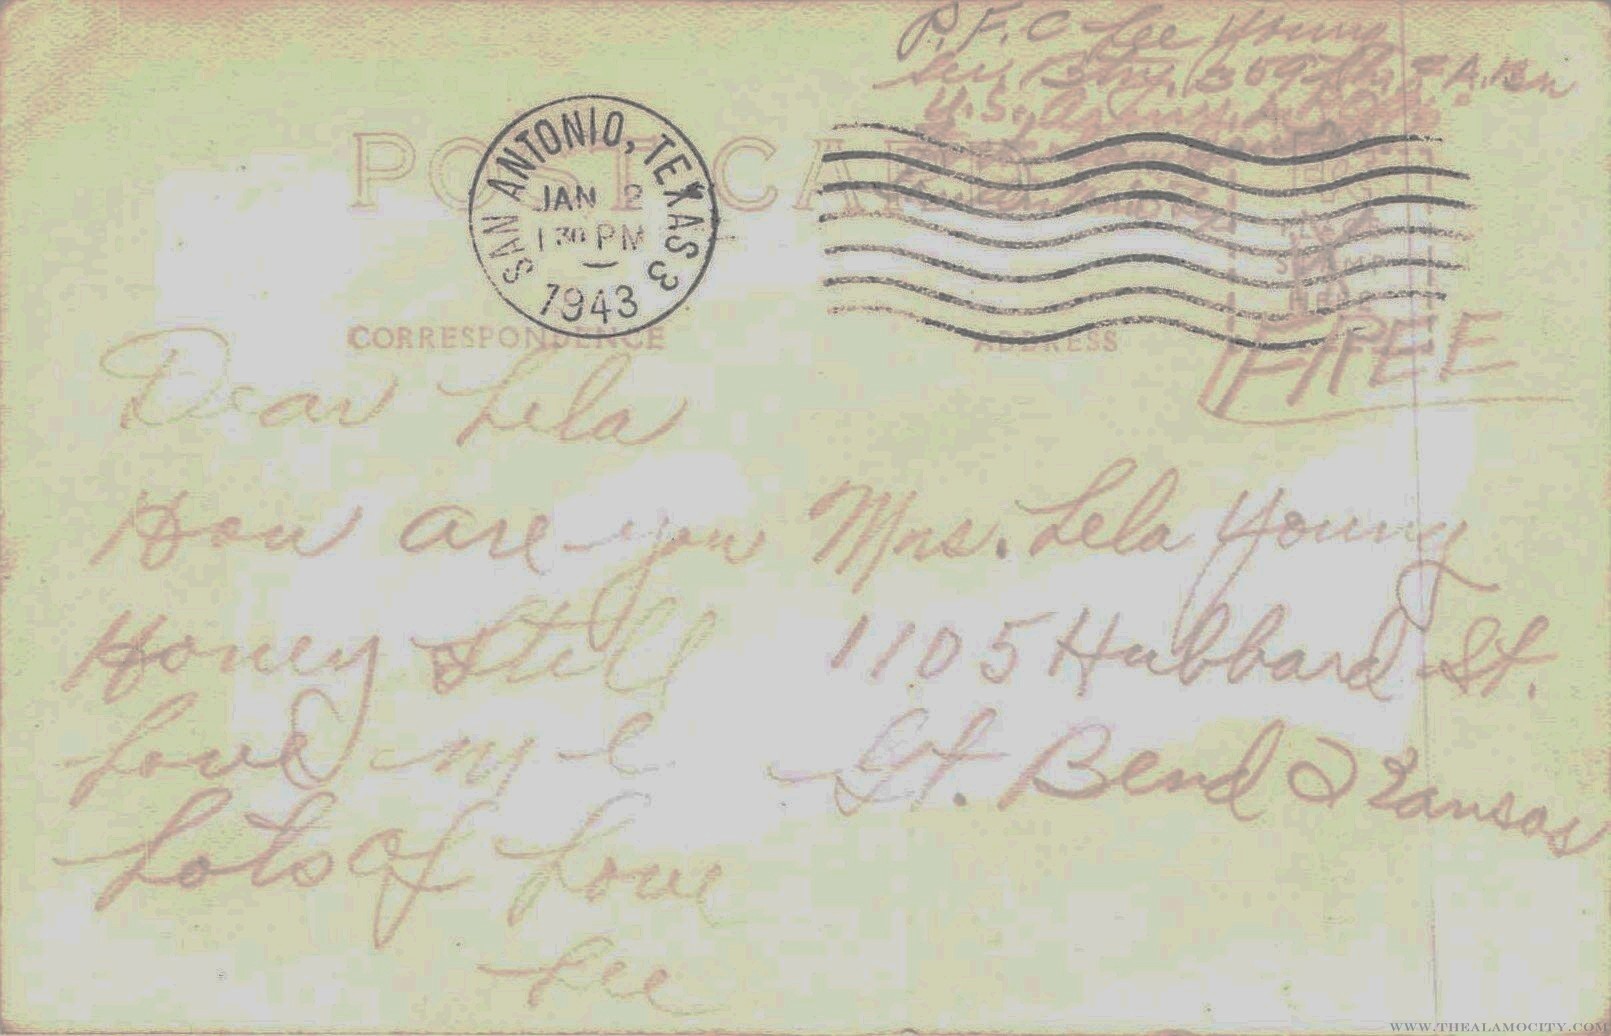 P.F.C Lee Young
Btry. 309th F.A. Bn
U.S. Army
POST CARD
SAN ANTONIO, TEXAS 3
JAN 2
1 30 PM
1943
PLACE
STAMP
HERE
FREE
CORRESPONDENCE
ADDRESS
Dear Lela
How are you
Honey Still
Love me
Lots of Love
Lee
Mrs. Lela Young
1105 Hubbard St.
Gt. Bend Kansas
WWW.THEALAMOCITY.COM